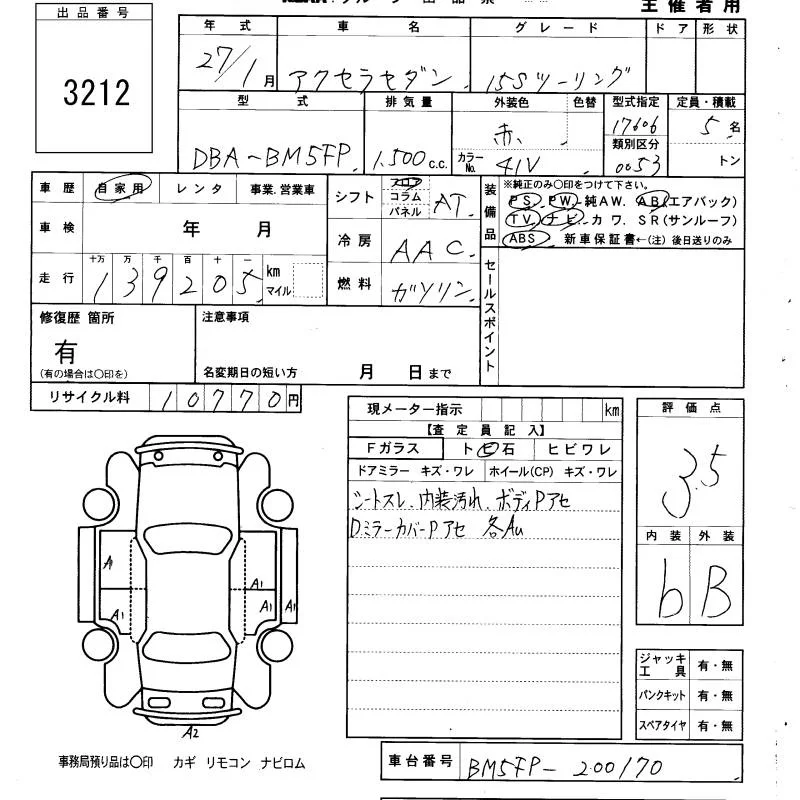 出品票
主催者用
出品番号
3212
年式 車名 グレード ドア 形状
27/1月 アクセラセダン 15Sツーリング
型式 排気量 外装色 色替 型式指定 定員・積載
DBA-BM5FP 1,500c.c. 赤 17606 5名
カラーNo. 41V 類別区分 0053 トン
車歴 自家用 レンタ 事業.営業車
シフト フロア コラム パネル AT
装備品 ※純正のみ○印をつけて下さい。
PS. PW. 純AW. AB(エアバック)
TV. ナビ. カワ. SR(サンルーフ)
ABS 新車保証書←(注) 後日送りのみ
車検 年 月
冷房 AAC
走行 十万 万 千 百 十 一
139205 km マイル
燃料 ガソリン
セールスポイント
修復歴 箇所 注意事項
有
(有の場合は○印を) 名変期日の短い方 月 日まで
リサイクル料 10770円
現メーター指示 km
【査定員記入】
Fガラス トビ石 ヒビワレ
ドアミラー キズ・ワレ ホイール(CP) キズ・ワレ
シートスレ、内装汚れ、ボディPアセ
DミラーカバーPアセ 各Au
評価点
3.5
内装 外装
b B
A1
A1
A1
A1
A1
A2
ジャッキ工具 有・無
パンクキット 有・無
スペアタイヤ 有・無
事務局預り品は○印 カギ リモコン ナビロム
車台番号 BM5FP-200170